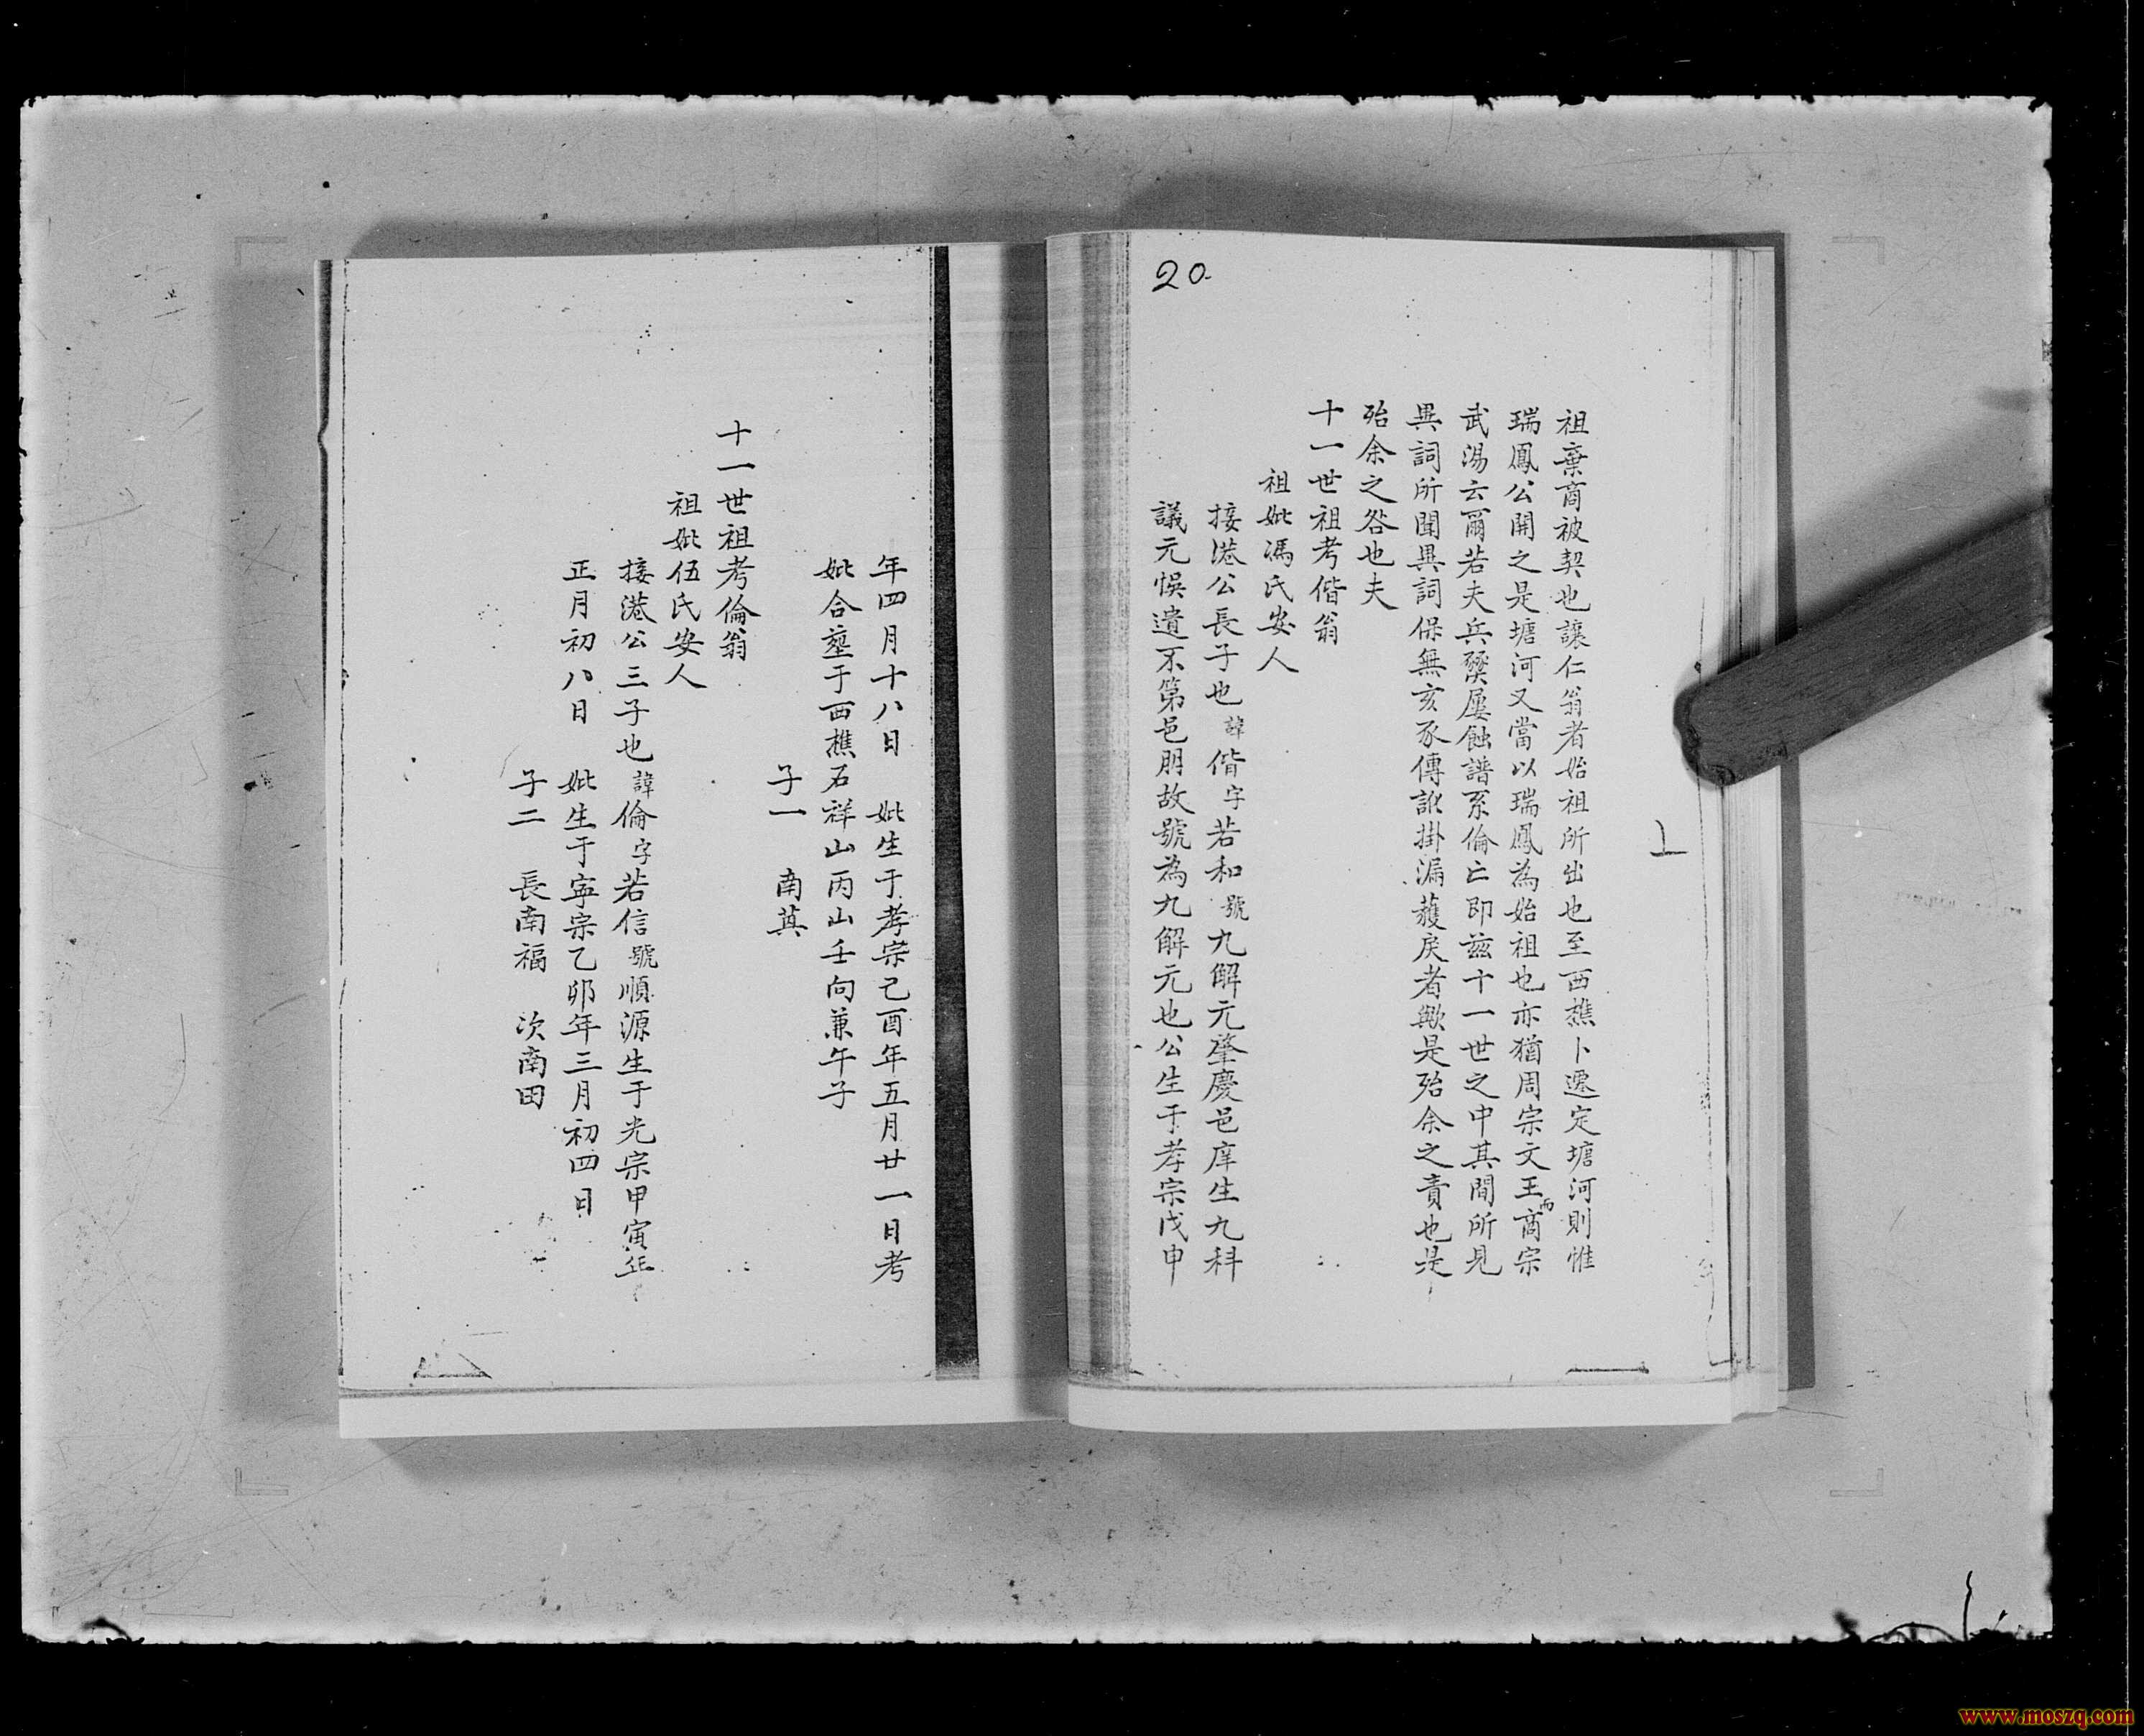 20
祖棄商被契也讓仁翁者始祖所出也至西樵卜遷定塘河則惟
瑞鳳公開之是塘河又當以瑞鳳為始祖也亦猶周宗文王而商宗
武湯云爾若夫兵燹屢蝕譜系倫亡即茲十一世之中其間所見
異詞所聞異詞保無亥豕傳訛掛漏獲戾者歟是殆余之責也是
殆余之咎也夫
十一世祖考偕翁
祖妣馮氏安人
接港公長子也諱偕字若和號九解元肇慶邑庠生九科
議元悞遺不第邑朋故號為九解元也公生于孝宗戊申
年四月十八日 妣生于孝宗己酉年五月廿一日考
妣合塟于西樵石祥山丙山壬向兼午子
子一 南英
十一世祖考倫翁
祖妣伍氏安人
接港公三子也諱倫字若信號順源生于光宗甲寅年
正月初八日 妣生于寧宗乙卯年三月初四日
子二 長南福 次南田
www.moszq.com